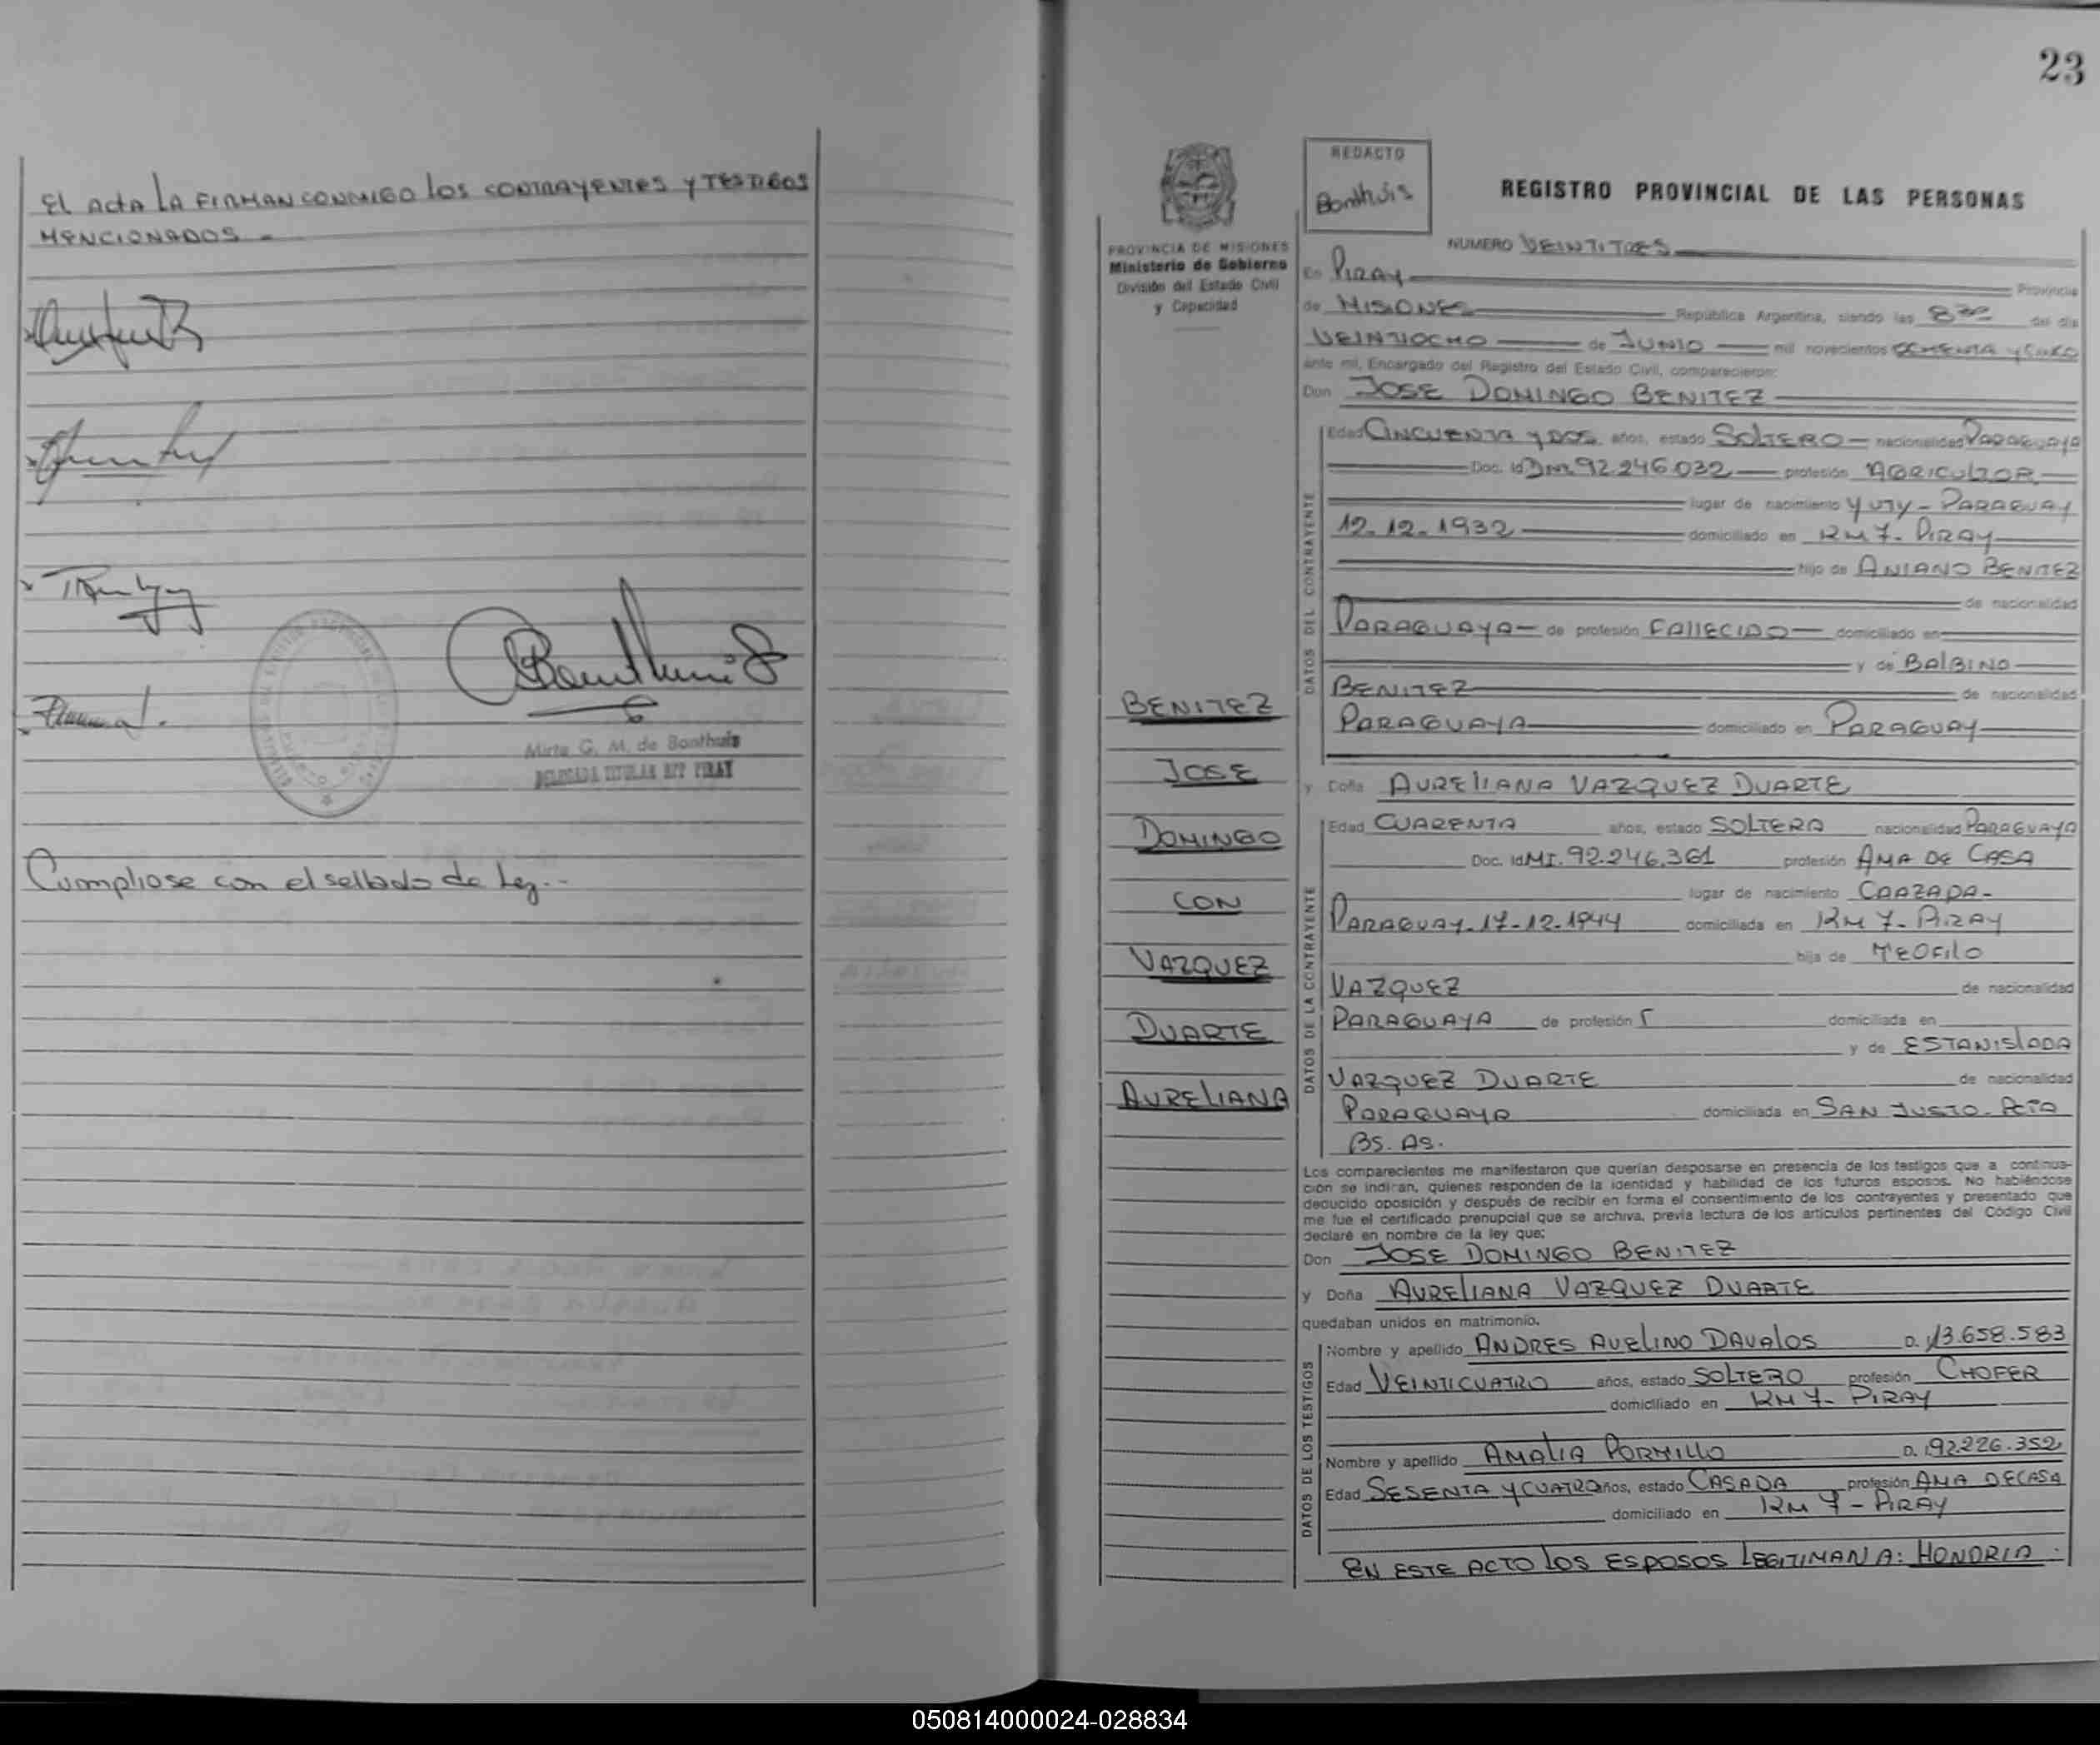 El ACTA LA FIRMAN CONMIGO los CONTRAYENTES Y TESTIGOS
MENCIONADOS -
Mirta G. M. de Bonthuis
DELEGADA TITULAR RPP PIRAY
Cumpliose con el sellado de Ley.-
23
PROVINCIA DE MISIONES
Ministerio de Gobierno
División del Estado Civil
y Capacidad
BENITEZ
JOSE
DOMINGO
CON
VAZQUEZ
DUARTE
AURELIANA
REDACTO
Bonthuis
REGISTRO PROVINCIAL DE LAS PERSONAS
NUMERO VEINTITRES
En PIRAY Provincia
de MISIONES República Argentina, siendo las 8 del día
VEINTIOCHO de JUNIO mil novecientos OCHENTA Y CINCO
ante mí, Encargado del Registro del Estado Civil, comparecieron:
Don JOSE DOMINGO BENITEZ
DATOS DEL CONTRAYENTE
Edad CINCUENTA Y DOS años, estado SOLTERO nacionalidad PARAGUAYA
Doc. Id DNI. 92.246.032 profesión AGRICULTOR
lugar de nacimiento YUTY - PARAGUAY
12.12.1932 domiciliado en KM 7. PIRAY
hijo de ANIANO BENITEZ
de nacionalidad
PARAGUAYA de profesión FALLECIDO domiciliado en
y de BALBINO
BENITEZ de nacionalidad
PARAGUAYA domiciliado en PARAGUAY
y Doña AURELIANA VAZQUEZ DUARTE
DATOS DE LA CONTRAYENTE
Edad CUARENTA años, estado SOLTERA nacionalidad PARAGUAYA
Doc. Id MI. 92.246.361 profesión AMA DE CASA
lugar de nacimiento CAAZAPA-
PARAGUAY-17-12-1944 domiciliada en KM 7-PIRAY
hija de TEOFILO
VAZQUEZ de nacionalidad
PARAGUAYA de profesión domiciliada en
y de ESTANISLADA
VAZQUEZ DUARTE de nacionalidad
PARAGUAYA domiciliada en SAN JUSTO- PCIA
BS. AS.
Los comparecientes me manifestaron que querían desposarse en presencia de los testigos que a continua-
ción se indican, quienes responden de la identidad y habilidad de los futuros esposos. No habiéndose
deducido oposición y después de recibir en forma el consentimiento de los contrayentes y presentado que
me fue el certificado prenupcial que se archiva, previa lectura de los artículos pertinentes del Código Civil
declaré en nombre de la ley que:
Don JOSE DOMINGO BENITEZ
y Doña AURELIANA VAZQUEZ DUARTE
quedaban unidos en matrimonio.
DATOS DE LOS TESTIGOS
Nombre y apellido ANDRES AVELINO DAVALOS D. 13.658.583
Edad VEINTICUATRO años, estado SOLTERO profesión CHOFER
domiciliado en KM 7- PIRAY
Nombre y apellido AMALIA D. 92.226.352
Edad SESENTA Y CUATRO años, estado CASADA profesión AMA DE CASA
domiciliado en KM 7 - PIRAY
EN ESTE ACTO LOS ESPOSOS LEGITIMAN A: HONORIA
050814000024-028834